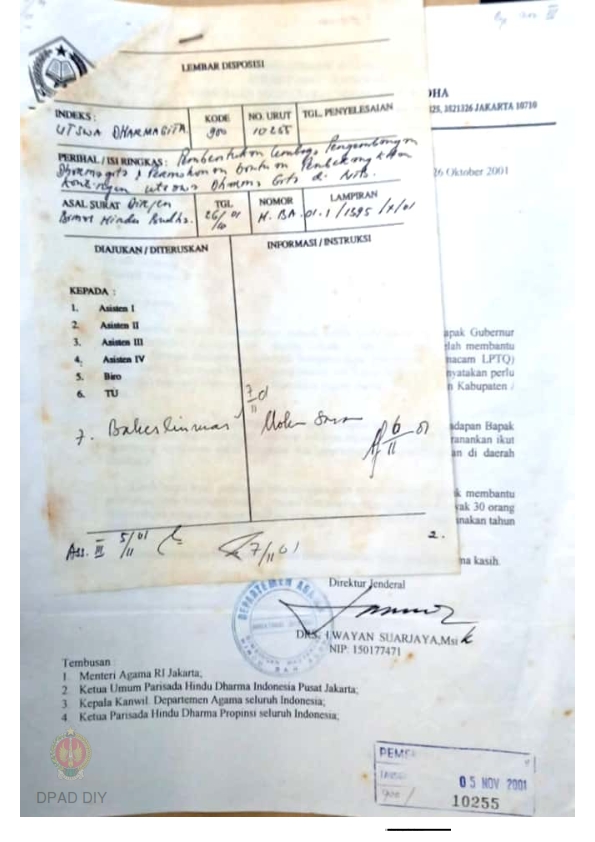 LEMBAR DISPOSISI
DHA
3521326 JAKARTA 10710
INDEKS :
UTSWA DHARMAGITA
KODE
900
NO. URUT
10255
TGL. PENYELESAIAN
PERIHAL / ISI RINGKAS : Pembentukan Lembaga Pengembangan
Dharmagita & Permohonan bantuan
Utsawa Dharma Gita di
26 Oktober 2001
ASAL SURAT Dirjen
Bimas Hindu Budha.
TGL
26/10 01
NOMOR
LAMPIRAN
H. BA. 01.1/1395/X/01
DIAJUKAN / DITERUSKAN
INFORMASI / INSTRUKSI
KEPADA :
1. Asisten I
2. Asisten II
3. Asisten III
4. Asisten IV
5. Biro
6. TU
7. Bakeslinmas
Mohon Saran
6/11 01
apak Gubernur
lah membantu
nacam LPTQ)
nyatakan perlu
n Kabupaten /
adapan Bapak
ranankan ikut
an di daerah
k membantu
yak 30 orang
anakan tahun
2.
Ass. III 5/11 01
7/11 01
ma kasih.
Direktur Jenderal
DEPARTEMEN AGAMA
DRS. I WAYAN SUARJAYA,Msi
NIP. 150177471
Tembusan :
1 Menteri Agama RI Jakarta;
2 Ketua Umum Parisada Hindu Dharma Indonesia Pusat Jakarta;
3 Kepala Kanwil. Departemen Agama seluruh Indonesia;
4 Ketua Parisada Hindu Dharma Propinsi seluruh Indonesia;
05 NOV 2001
10255
DPAD DIY